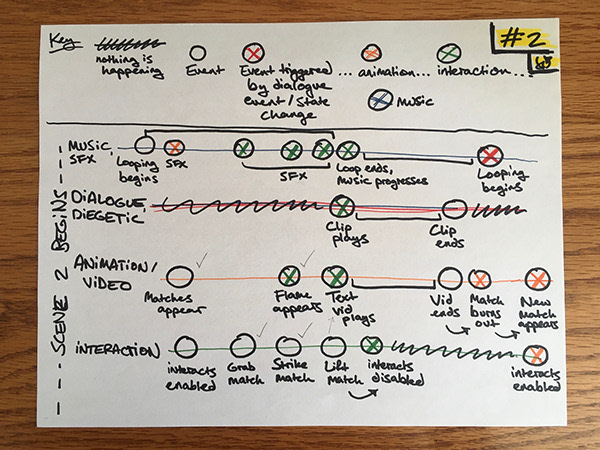 Key
#2
nothing is
happening
Event
Event triggered
by dialogue
event/State
change
... animation...
interaction...
MUSIC
SCENE 2 BEGINS
MUSIC,
SFX
Looping
begins
SFX
SFX
Loop ends,
Music progresses
Looping
begins
DIALOGUE,
DIEGETIC
Clip
plays
Clip
ends
ANIMATION/
VIDEO
Matches
appear
Flame
appears
Text
vid
plays
Vid
ends
Match
burns
out
New
match
appears
INTERACTION
interacts
enabled
Grab
match
Strike
Match
Lift
Match
interacts
disabled
interacts
enabled